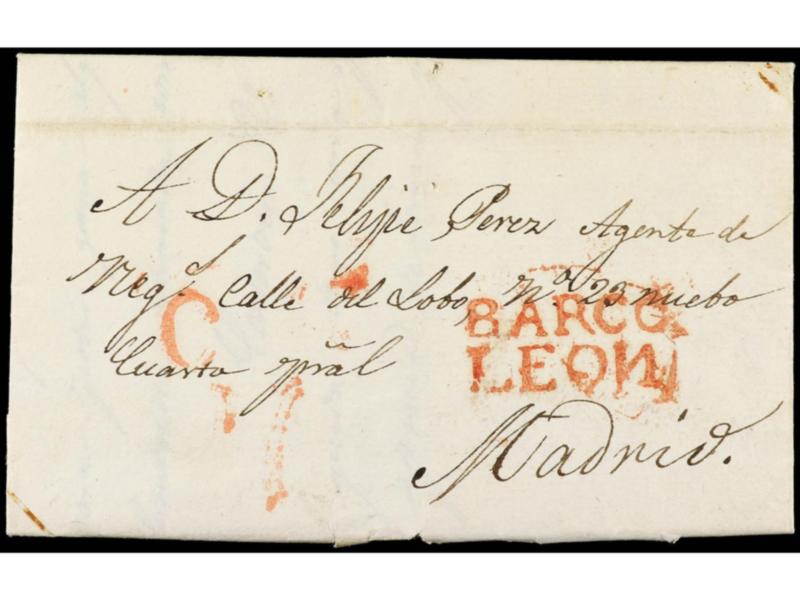 A D. Felipe Perez Agente de
Neg.s Calle del Lobo, N.o 23 nuebo
Cuarto pral
BARCO.
LEON
Madrid.